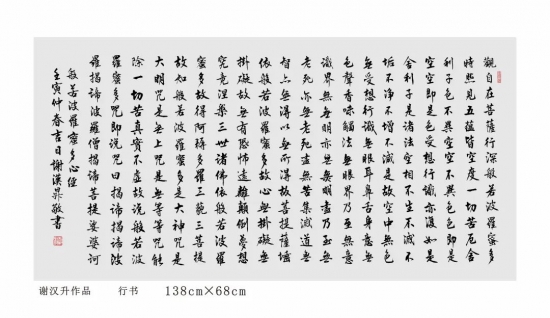 觀自在菩薩行深般若波羅蜜多
時照見五蘊皆空度一切苦厄舍
利子色不異空空不異色色即是
空空即是色受想行識亦復如是
舍利子是諸法空相不生不滅不
垢不淨不增不減是故空中無色
無受想行識無眼耳鼻舌身意無
色聲香味觸法無眼界乃至無意
識界無無明亦無無明盡乃至無
老死亦無老死盡無苦集滅道無
智亦無得以無所得故菩提薩埵
依般若波羅蜜多故心無掛礙無
掛礙故無有恐怖遠離顛倒夢想
究竟涅槃三世諸佛依般若波羅
蜜多故得阿耨多羅三藐三菩提
故知般若波羅蜜多是大神咒是
大明咒是無上咒是無等等咒能
除一切苦真實不虛故說般若波
羅蜜多咒即說咒曰揭諦揭諦波
羅揭諦波羅僧揭諦菩提娑婆訶
般若波羅蜜多心經
壬寅仲春吉日謝漢昇敬書
谢汉升作品 行书 138cm×68cm